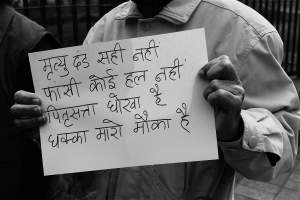 मृत्यु दंड सही नहीं
फासी कोई हल नहीं
पितृसत्ता धोखा है
धक्का मारो मौका है